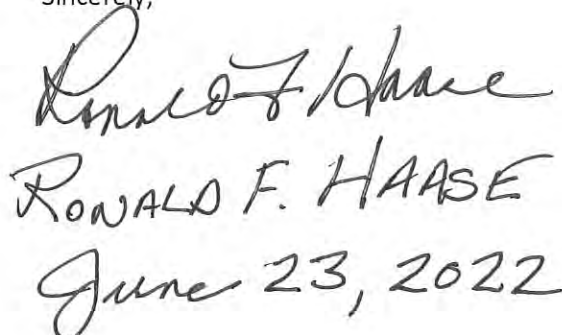 Sincerely,
Ronald F Haase
RONALD F. HAASE
June 23, 2022